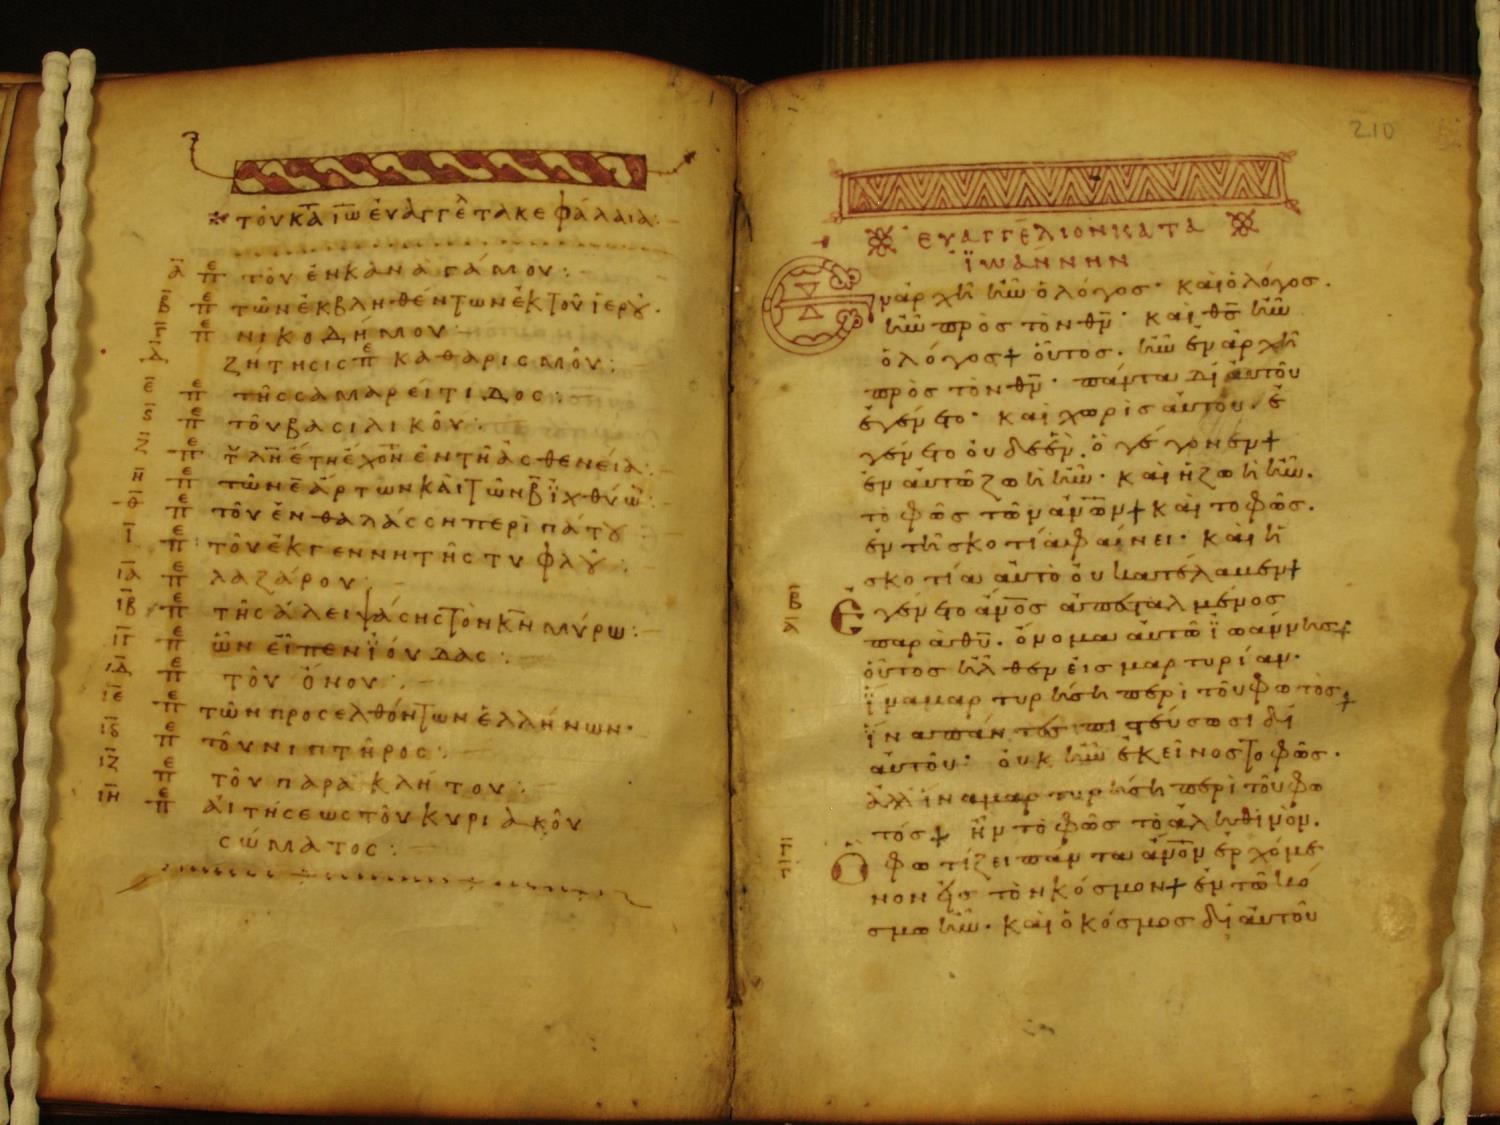 τοῦ κατ ιω ευαγγε τα κεφάλαια:
ᾱ π̅ε τοῦ ἐν κανὰ γάμου:
β̄ π̅ε τῶν ἐκβληθέντων ἐκ τοῦ ἱεροῦ.
γ̄ π̅ε νικοδήμου:
δ̄ ζήτησις π̅ε καθαρισμοῦ:
ε̄ π̅ε τῆς σαμαρείτιδος:
ς̄ π̅ε τοῦ βασιλικοῦ:
ζ̄ π̅ε τοῦ λη ἔτη ἔχοντ ἐν τῆ ἀσθενεία:
η̄ π̅ε τῶν ε̄ ἄρτων καὶ τῶν β̄ ἰχθύων:
θ̄ π̅ε τοῦ ἐν θαλάσση περιπάτου
ῑ π̅ε τοῦ ἐκ γεννητῆς τυφλοῦ:
ῑᾱ π̅ε λαζάρου:
ῑβ̄ π̅ε τῆς ἀλειψάσης τὸν κ̅ν μύρω:
ῑγ̄ π̅ε ὧν εἶπεν ϊούδας:
ῑδ̄ π̅ε τοῦ ὄνου:
ῑε̄ π̅ε τῶν προσελθόντων ἑλλήνων.
ῑς̄ π̅ε τοῦ νιπτῆρος:
ῑζ̄ π̅ε τοῦ παρακλήτου:
ῑη̄ π̅ε αἰτήσεως τοῦ κυριακοῦ
σώματος:
210
ευαγγέλιον κατα
ϊωάννην
Εν ἀρχῆ ἦν ὁ λόγος· καὶ ὁ λόγος.
ἦν πρὸς τὸν θ̅ν· καὶ θ̅ς ἦν
ὁ λόγος+ οὗτος. ἦν ἐν ἀρχῆ
πρὸς τὸν θ̅ν· πάντα δι αὐτοῦ
ἐγένετο· καὶ χωρὶς αὐτοῦ. ἐ
γένετο οὐδὲ ἕν. ὃ γέγονεν+
ἐν αὐτῶ ζωὴ ἦν· καὶ ἡ ζωὴ ἦν.
τὸ φῶς τῶν α̅ν̅ω̅ν+ καὶ το φῶς.
ἐν τῆ σκοτία φαίνει· καὶ ἡ
σκοτία αὐτὸ οὐ κατέλαβεν+
β̄ ᾱ Ἐγένετο α̅ν̅ο̅ς ἀπεσταλμένος
παρὰ θ̅υ. ὄνομα αὐτῶ ϊωάννης+
οὗτος ἦλθεν εἰς μαρτυρίαν.
ϊνα μαρτυρήση περὶ τοῦ φωτὸς+
ϊνα πάντες πιστεύσωσι δι
αὐτοῦ· οὐκ ἦν ἐκεῖνος το φῶς.
ἀλλ ἵνα μαρτυρήση περὶ τοῦ φω
τός+ ἦν τὸ φῶς τὸ ἀληθινόν.
γ̄ γ̄ Ὃ φωτίζει πάντα α̅ν̅ο̅ν ἐρχόμε
νον εἰς τὸν κόσμον+ ἐν τῶ κό
σμω ἦν. καὶ ὁ κόσμος δι αὐτοῦ